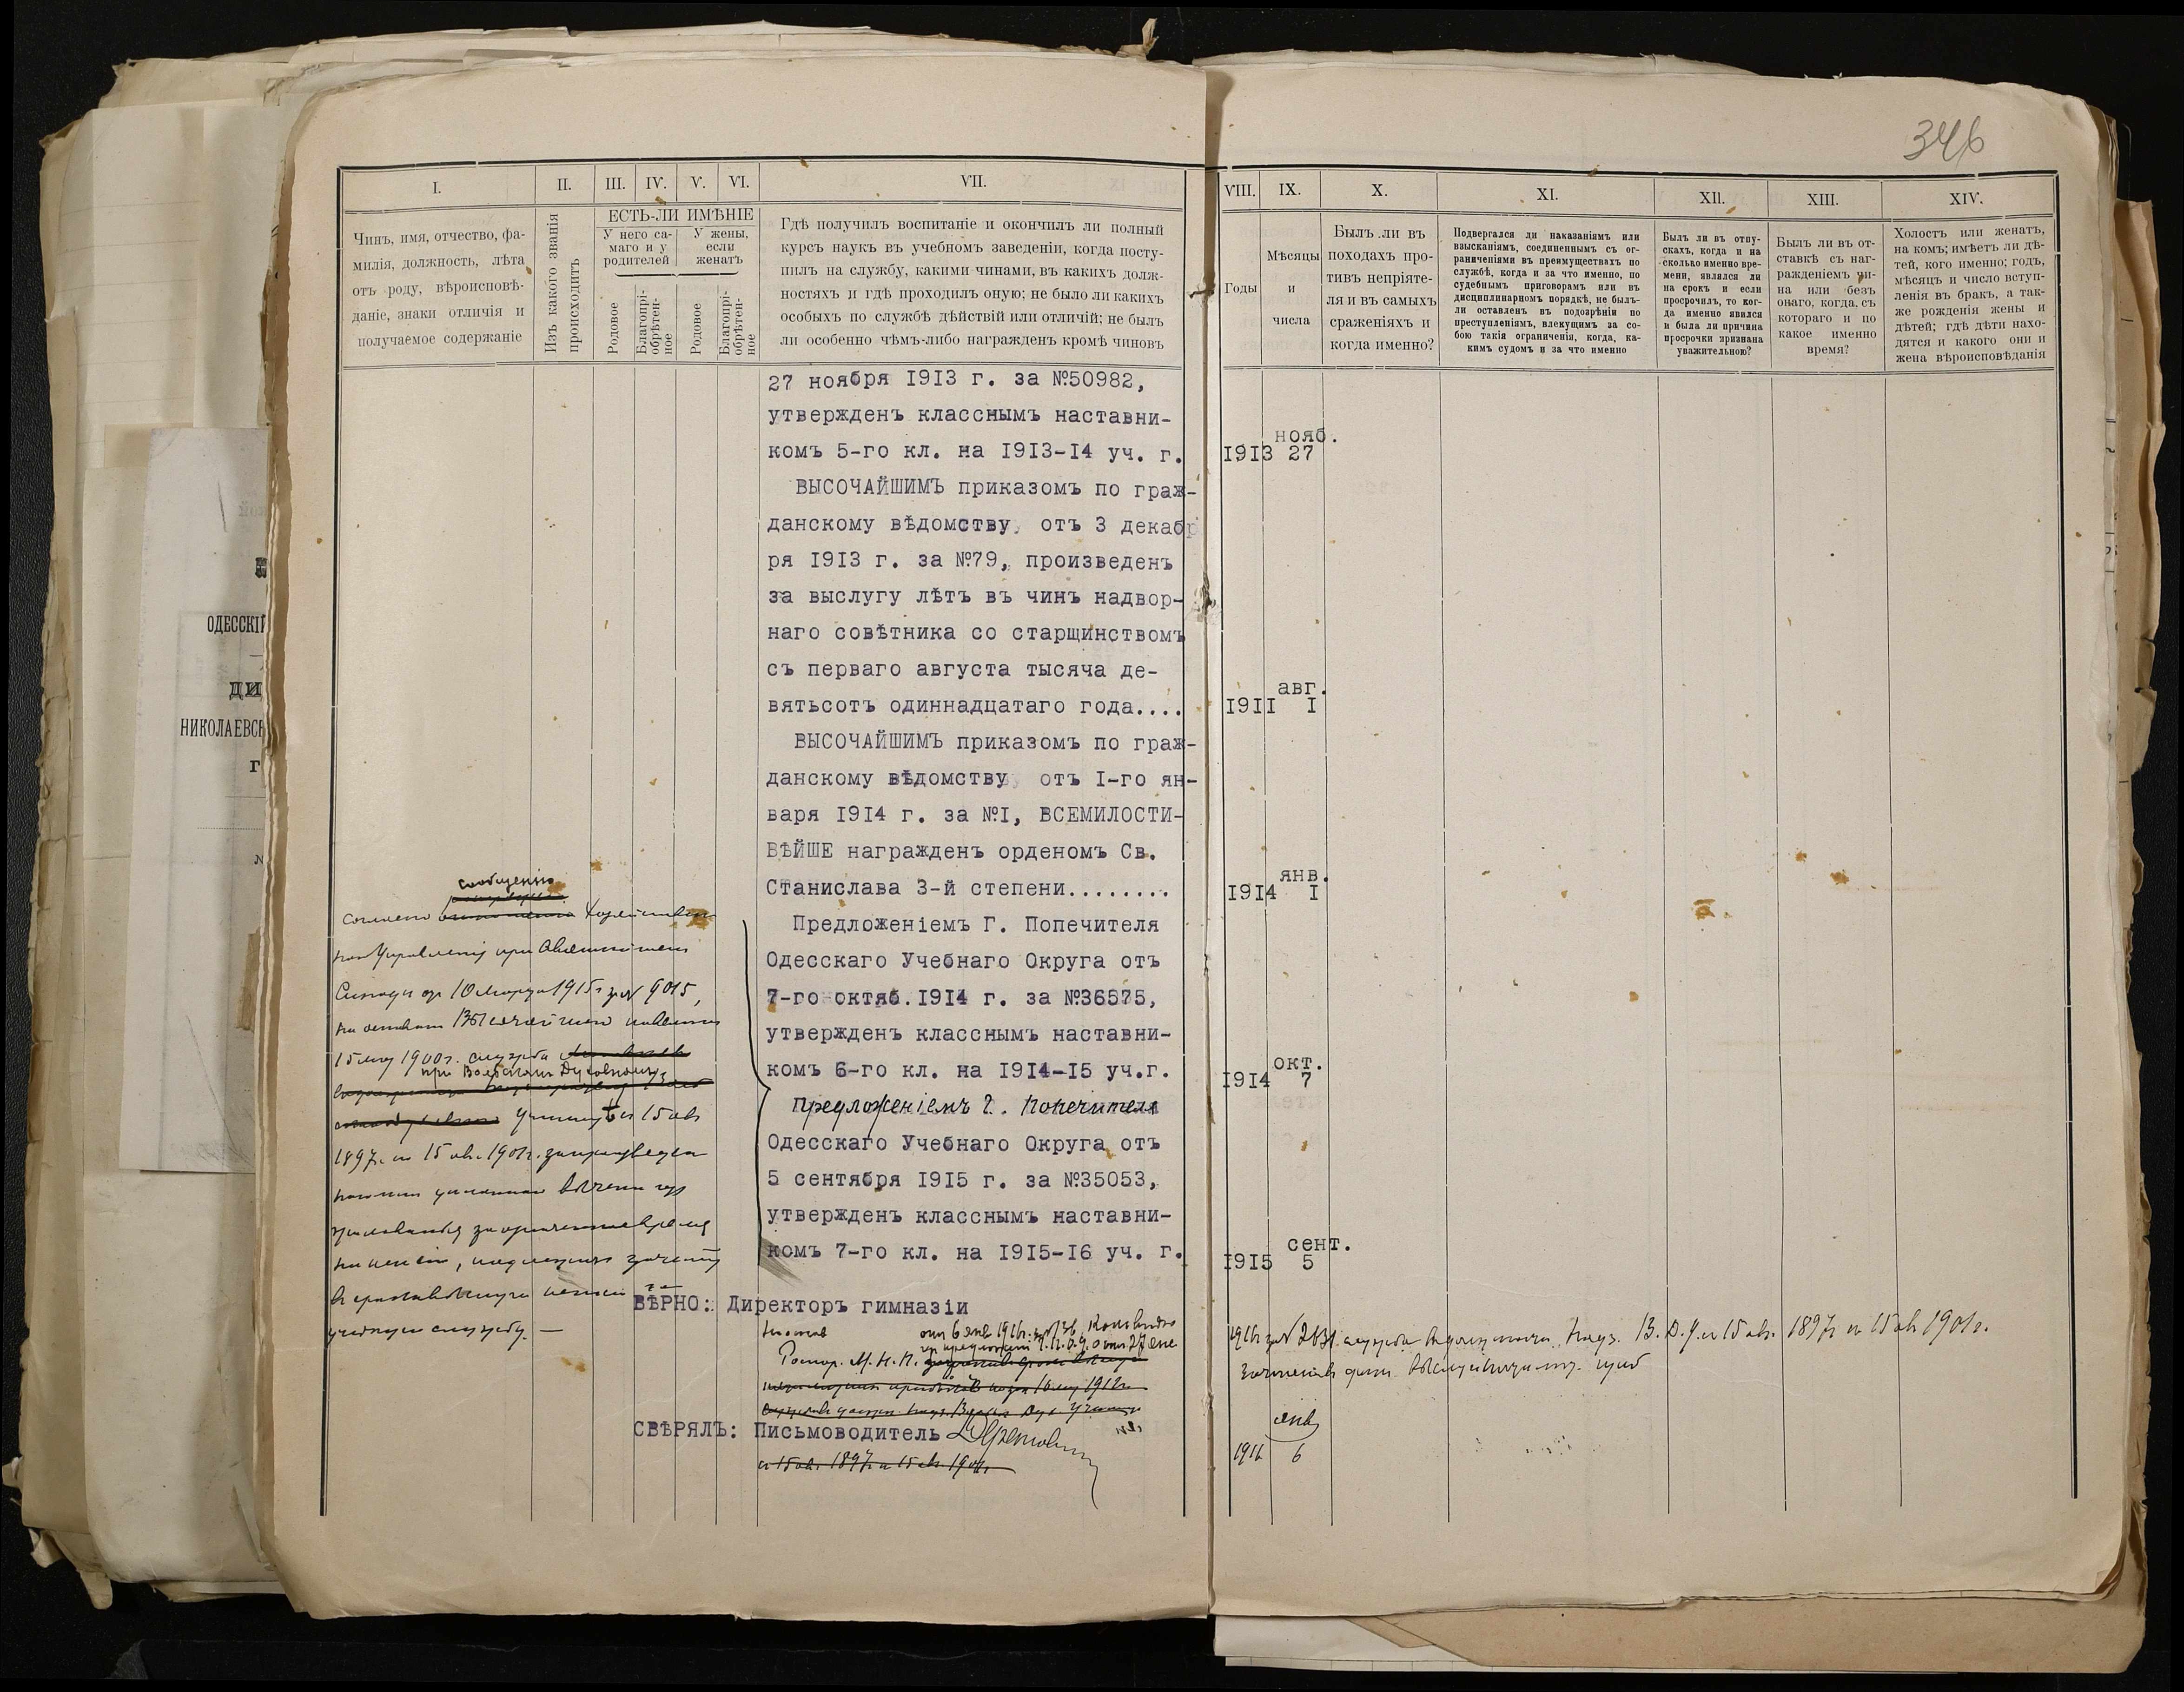 346
I. II. III. IV. V. VI. VII.
Чинъ, имя, отчество, фа-
милія, должность, лѣта
отъ роду, вѣроисповѣ-
даніе, знаки отличія и
получаемое содержаніе
Изъ какого званія
происходитъ
ЕСТЬ-ЛИ ИМѢНІЕ
У него са-
маго и у
родителей
У жены,
если
женатъ
Родовое
Благопрі-
обрѣтен-
ное
Родовое
Благопрі-
обрѣтен-
ное
Гдѣ получилъ воспитаніе и окончилъ ли полный
курсъ наукъ въ учебномъ заведеніи, когда посту-
пилъ на службу, какими чинами, въ какихъ долж-
ностяхъ и гдѣ проходилъ оную; не было ли какихъ
особыхъ по службѣ дѣйствій или отличій; не былъ
ли особенно чѣмъ-либо награжденъ кромѣ чиновъ
VIII. IX. X. XI. XII. XIII. XIV.
Годы
Мѣсяцы
и
числа
Былъ ли въ
походахъ про-
тивъ непріяте-
ля и въ самыхъ
сраженіяхъ и
когда именно?
Подвергался ли наказаніямъ или
взысканіямъ, соединеннымъ съ ог-
раниченіями въ преимуществахъ по
службѣ, когда и за что именно, по
судебнымъ приговорамъ или въ
дисциплинарномъ порядкѣ, не былъ-
ли оставленъ въ подозрѣніи по
преступленіямъ, влекущимъ за со-
бою такія ограниченія, когда, ка-
кимъ судомъ и за что именно
Былъ ли въ отпу-
скахъ, когда и на
сколько именно вре-
мени, являлся ли
на срокъ и если
просрочилъ, то ког-
да именно явился
и была ли причина
просрочки признана
уважительною?
Былъ ли въ от-
ставкѣ съ наг-
ражденіемъ чи-
на или безъ
онаго, когда, съ
котораго и по
какое именно
время?
Холостъ или женатъ,
на комъ; имѣетъ ли дѣ-
тей, кого именно; годъ,
мѣсяцъ и число вступ-
ленія въ бракъ, а так-
же рожденія жены и
дѣтей; гдѣ дѣти нахо-
дятся и какого они и
жена вѣроисповѣданія
27 ноября 1913 г. за №50982,
утвержденъ класснымъ наставни-
комъ 5-го кл. на 1913-14 уч. г.
нояб.
1913 27
ВЫСОЧАЙШИМЪ приказомъ по граж-
данскому вѣдомству, отъ 3 декаб
ря 1913 г. за №79, произведенъ
за выслугу лѣтъ въ чинъ надвор-
наго совѣтника со старщинствомъ
съ перваго августа тысяча де-
вятьсотъ одиннадцатаго года....
авг.
1911 I
ВЫСОЧАЙШИМЪ приказомъ по граж-
данскому вѣдомству отъ I-го ян-
варя 1914 г. за №I, ВСЕМИЛОСТИ-
ВѢЙШЕ награжденъ орденомъ Св.
Станислава 3-й степени........
янв.
1914 I
Предложеніемъ Г. Попечителя
Одесскаго Учебнаго Округа отъ
7-го октяб. 1914 г. за №36575,
утвержденъ класснымъ наставни-
комъ 6-го кл. на 1914-15 уч.г.
окт.
1914 7
Предложеніемъ Г. Попечителя
Одесскаго Учебнаго Округа отъ
5 сентября 1915 г. за №35053,
утвержденъ класснымъ наставни-
комъ 7-го кл. на 1915-16 уч. г.
сент.
1915 5
сообщенію
Согласно
Управленія при Святѣйшемъ
Синодѣ отъ 10 марта 1915 г за № 9015,
на основаніи Высочайшаго повелѣнія
15 мая 1900 г. служба
при Вольскомъ Духовномъ
училищѣ съ 15 авг
1897 г. по 15 авг. 1901 г.
учебную службу. —
ВѢРНО: Директоръ гимназіи
отъ 6 янв 1916 г.
Распор. М. Н. П.
СВѢРЯЛЪ: Письмоводитель
съ 15 авг. 1897 г. по 15 авг. 1901 г.
1916 г за № 2631 служба въ должности надз. В. Д. У. съ 15 авг. 1897 г по 15 авг 1901 г.
янв
1916 6
ОДЕССКІЙ
ДИ
НИКОЛАЕВСК
Г